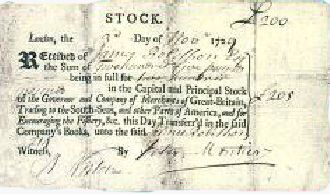 STOCK. £200
London, the 3d Day of Nov 1729
Received of James
the Sum of Two hundred & five pounds
being in full for two hundred
in the Capital and Principal Stock
of the Governor and Company of Merchants of Great-Britain, £205
Trading to the South-Seas, and other Parts of America, and for
Encouraging the Fishery, &c. this Day Transferr'd in the said
Company's Books, unto the said
Witness,
By